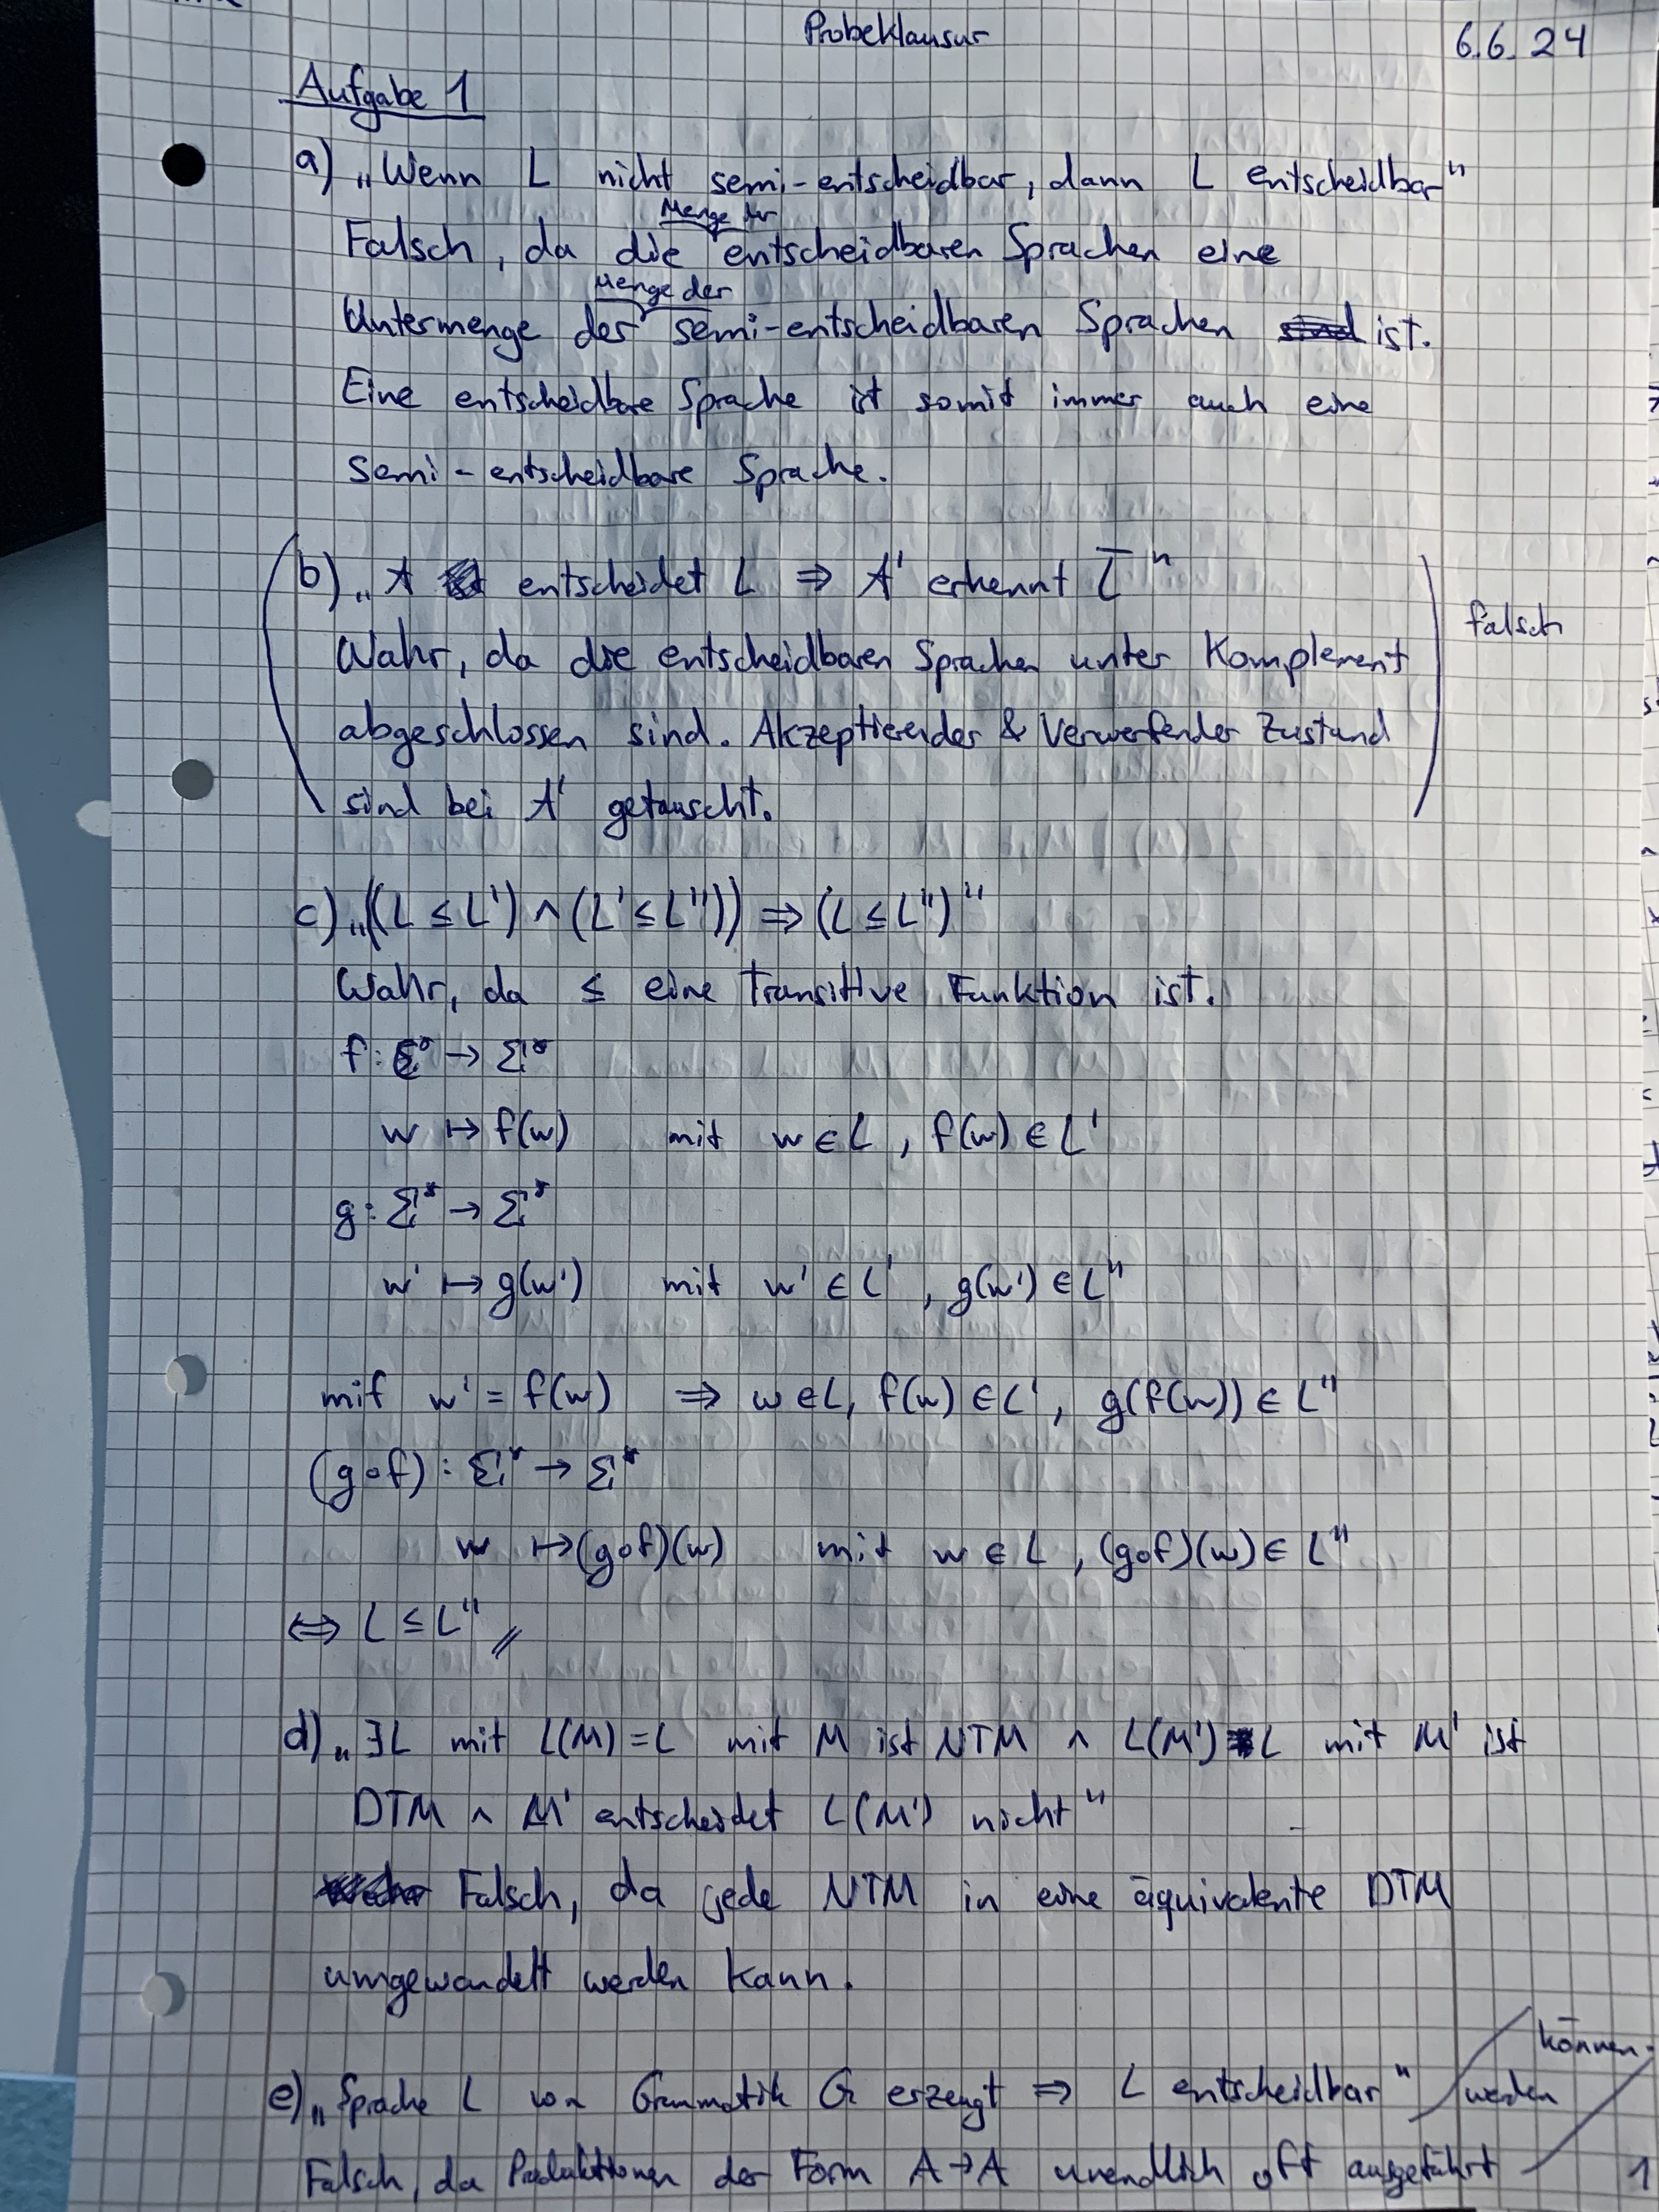 Probeklausur
6.6.24
Aufgabe 1
a) „Wenn L nicht semi-entscheidbar, dann L entscheidbar"
Menge der
Falsch, da die entscheidbaren Sprachen eine
Menge der
Untermenge der semi-entscheidbaren Sprachen ist.
Eine entscheidbare Sprache ist somit immer auch eine
semi-entscheidbare Sprache.
b) „A entscheidet L ⇒ A' erkennt L̅"
falsch
Wahr, da die entscheidbaren Sprachen unter Komplement
abgeschlossen sind. Akzeptierender & Verwerfender Zustand
sind bei A' getauscht.
c) „((L ≤ L') ∧ (L' ≤ L'')) ⇒ (L ≤ L'')"
Wahr, da ≤ eine transitive Funktion ist.
f: Σ* → Σ*
w ↦ f(w) mit w ∈ L, f(w) ∈ L'
g: Σ* → Σ*
w' ↦ g(w') mit w' ∈ L', g(w') ∈ L''
mit w' = f(w) ⇒ w ∈ L, f(w) ∈ L', g(f(w)) ∈ L''
(g∘f): Σ* → Σ*
w ↦ (g∘f)(w) mit w ∈ L, (g∘f)(w) ∈ L''
⇔ L ≤ L'' //
d) „∃L mit L(M) = L mit M ist NTM ∧ L(M') L mit M' ist
DTM ∧ M' entscheidet L(M') nicht"
Falsch, da jede NTM in eine äquivalente DTM
umgewandelt werden kann.
e) „Sprache L von Grammatik G erzeugt ⇒ L entscheidbar"
Falsch, da Produktionen der Form A→A unendlich oft ausgeführt
werden
können.
1